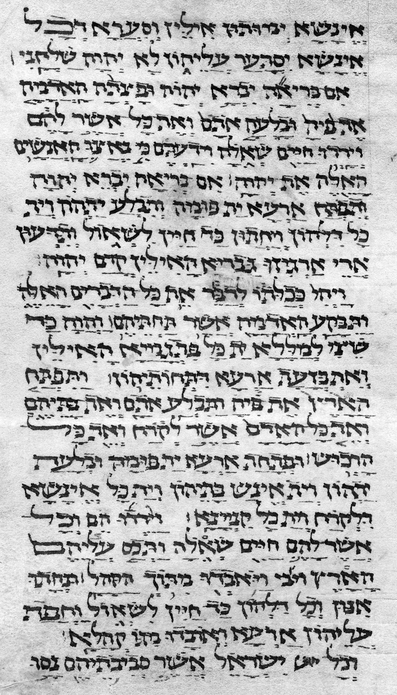 אינשא ימותון אילין וסערא דכל
אינשא יסתער עליהון לא יהוה שלחני׃
אם בריאה יברא יהוה ופצתה האדמה
את פיה ובלעה אתם ואת כל אשר להם
וירדו חיים שאלה וידעתם כי נאצו האנשים
האלה את יהוה׃ אם בריאה יברא יהוה
ותפתח ארעא ית פומה ותבלע יתהון וית
כל דלהון ויחתון כד חיין לשאול ותדעון
ארי ארגיזו גבריא האילין קדם יהוה׃
ויהי ככלתו לדבר את כל הדברים האלה
ותבקע האדמה אשר תחתיהם׃ והוה כד
שיצי למללא ית כל פתגמייא האילין
ואתבזעת ארעא דתחותיהון׃ ותפתח
הארץ את פיה ותבלע אתם ואת בתיהם
ואת כל האדם אשר לקרח ואת כל
הרכוש׃ ופתחת ארעא ית פומה ובלעת
יתהון וית אינש בתיהון וית כל אינשא
דלקרח וית כל קניינא׃ וירדו הם וכל
אשר להם חיים שאלה ותכס עליהם
הארץ ויאבדו מתוך הקהל׃ ונחתו
אנון וכל דלהון כד חיין לשאול וחפת
עליהון ארעא ואובדו מגו קהלא׃
וכל יש ישראל אשר סביבתיהם נסו